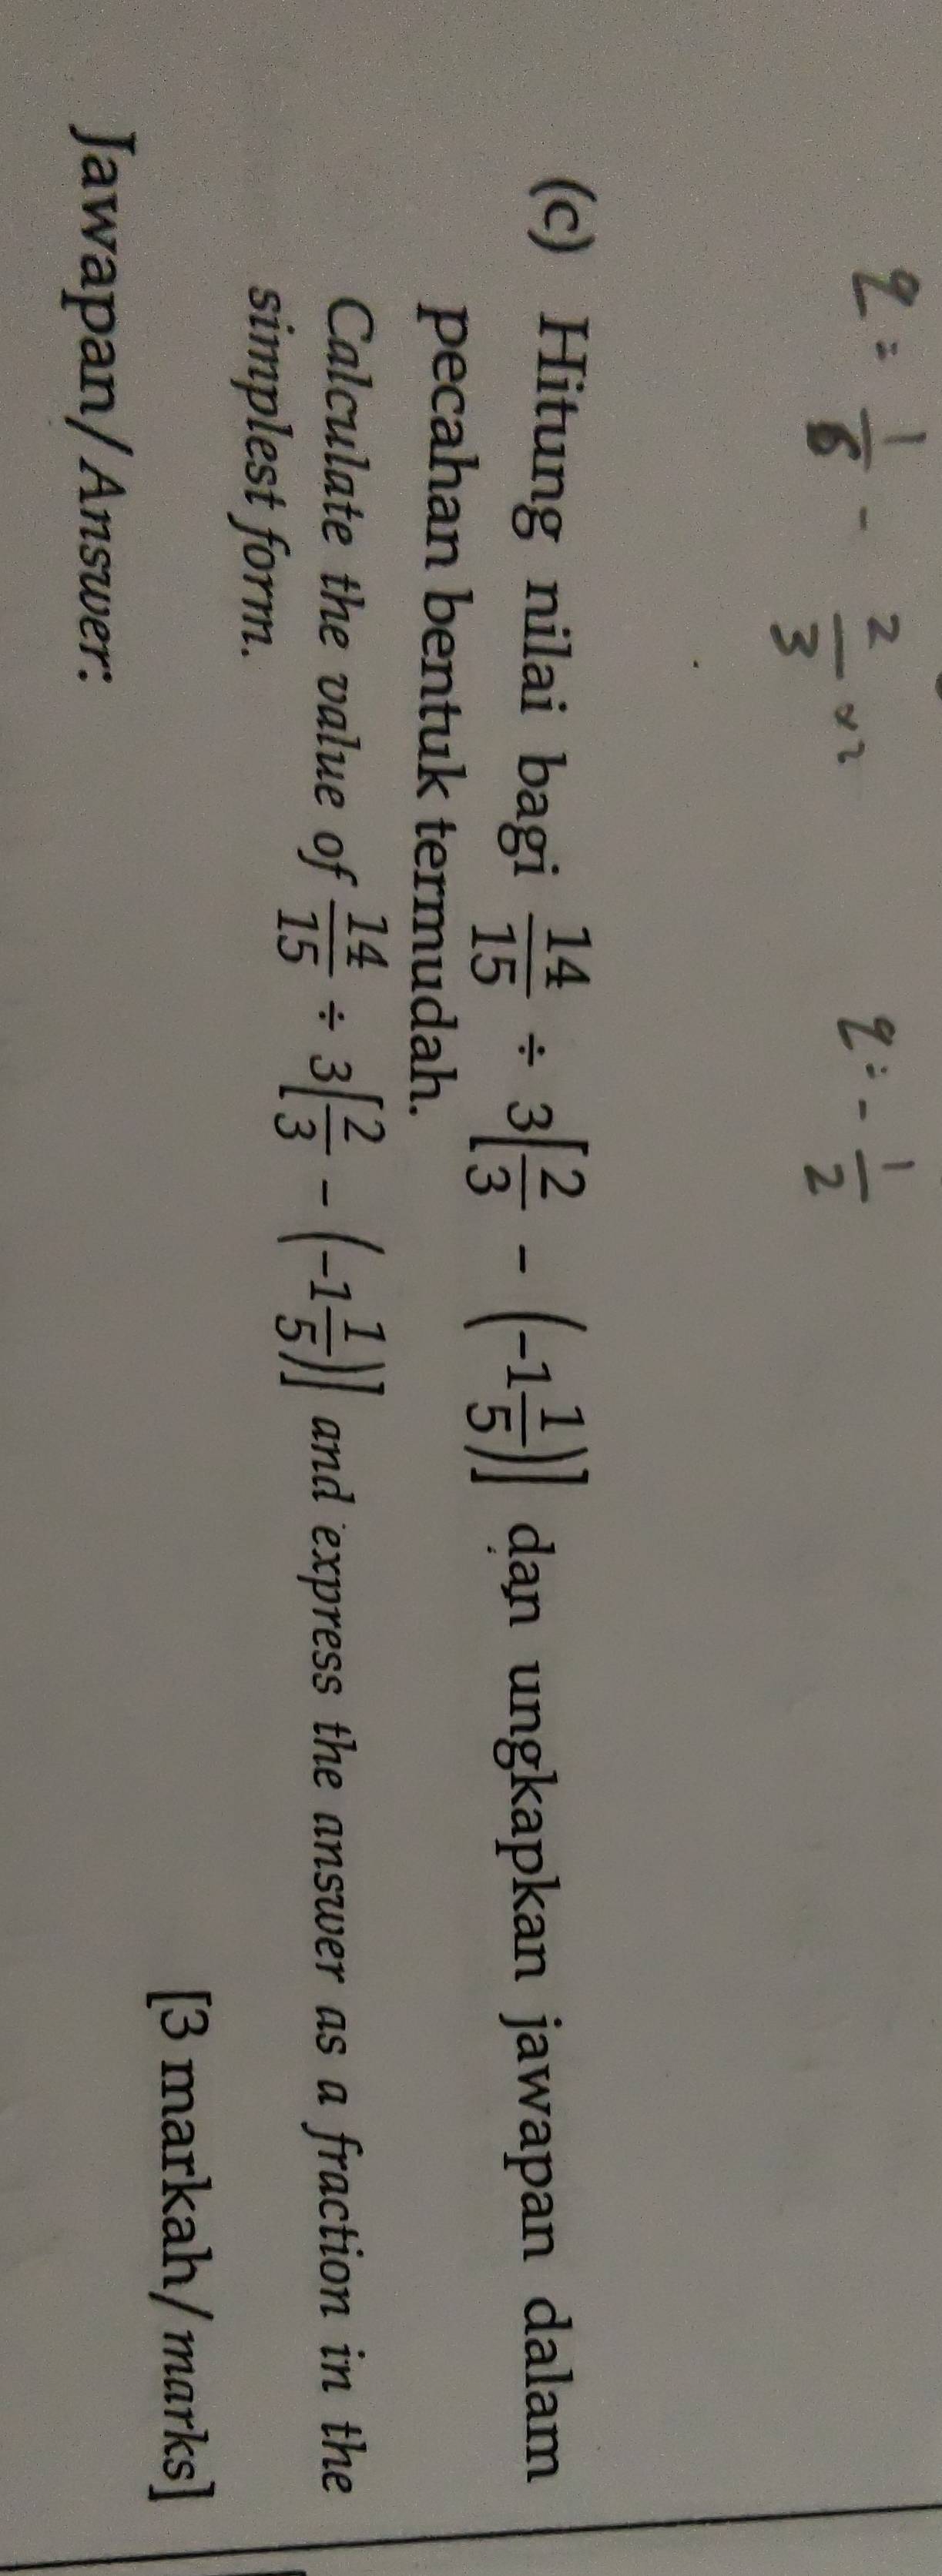 q = 1/6 - 2/3 x2 q = - 1/2
(c) Hitung nilai bagi 14/15 ÷ 3[2/3 – (–1 1/5)] dan ungkapkan jawapan dalam
pecahan bentuk termudah.
Calculate the value of 14/15 ÷ 3[2/3 – (–1 1/5)] and express the answer as a fraction in the
simplest form.
[3 markah/marks]
Jawapan/Answer: